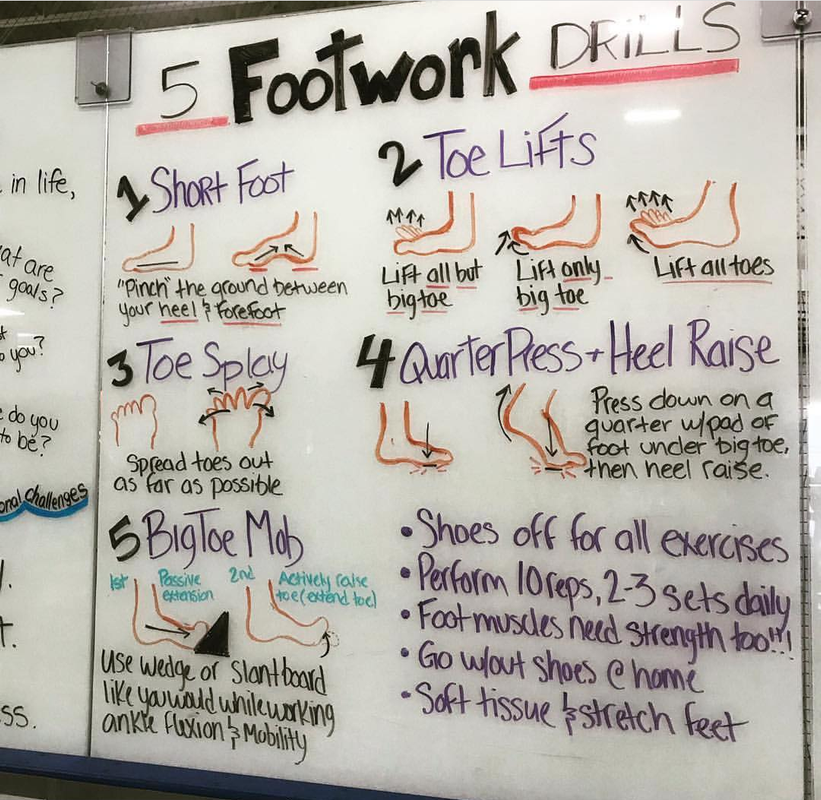 5 Footwork DRiLLS
1 SHORT FOOT
"Pinch" the ground between
your heel & forefoot
2 Toe LiFTs
Lift all but
big toe
Lift only
big toe
Lift all toes
3 Toe Splay
Spread toes out
as far as possible
4 Quarter Press + Heel Raise
Press down on a
quarter w/pad of
foot under big toe,
then heel raise.
5 Big Toe Mob
1st Passive
extension
2nd Actively raise
toe (extend toe)
Use wedge or Slantboard
like you would while working
ankle fluxion & Mobility
• Shoes off for all exercises
• Perform 10 reps, 2-3 sets daily
• Foot muscles need strength too!!!
• Go w/out shoes @ home
• Soft tissue & stretch feet
in life,
at are
goals?
you?
do you
to be?
onal challenges